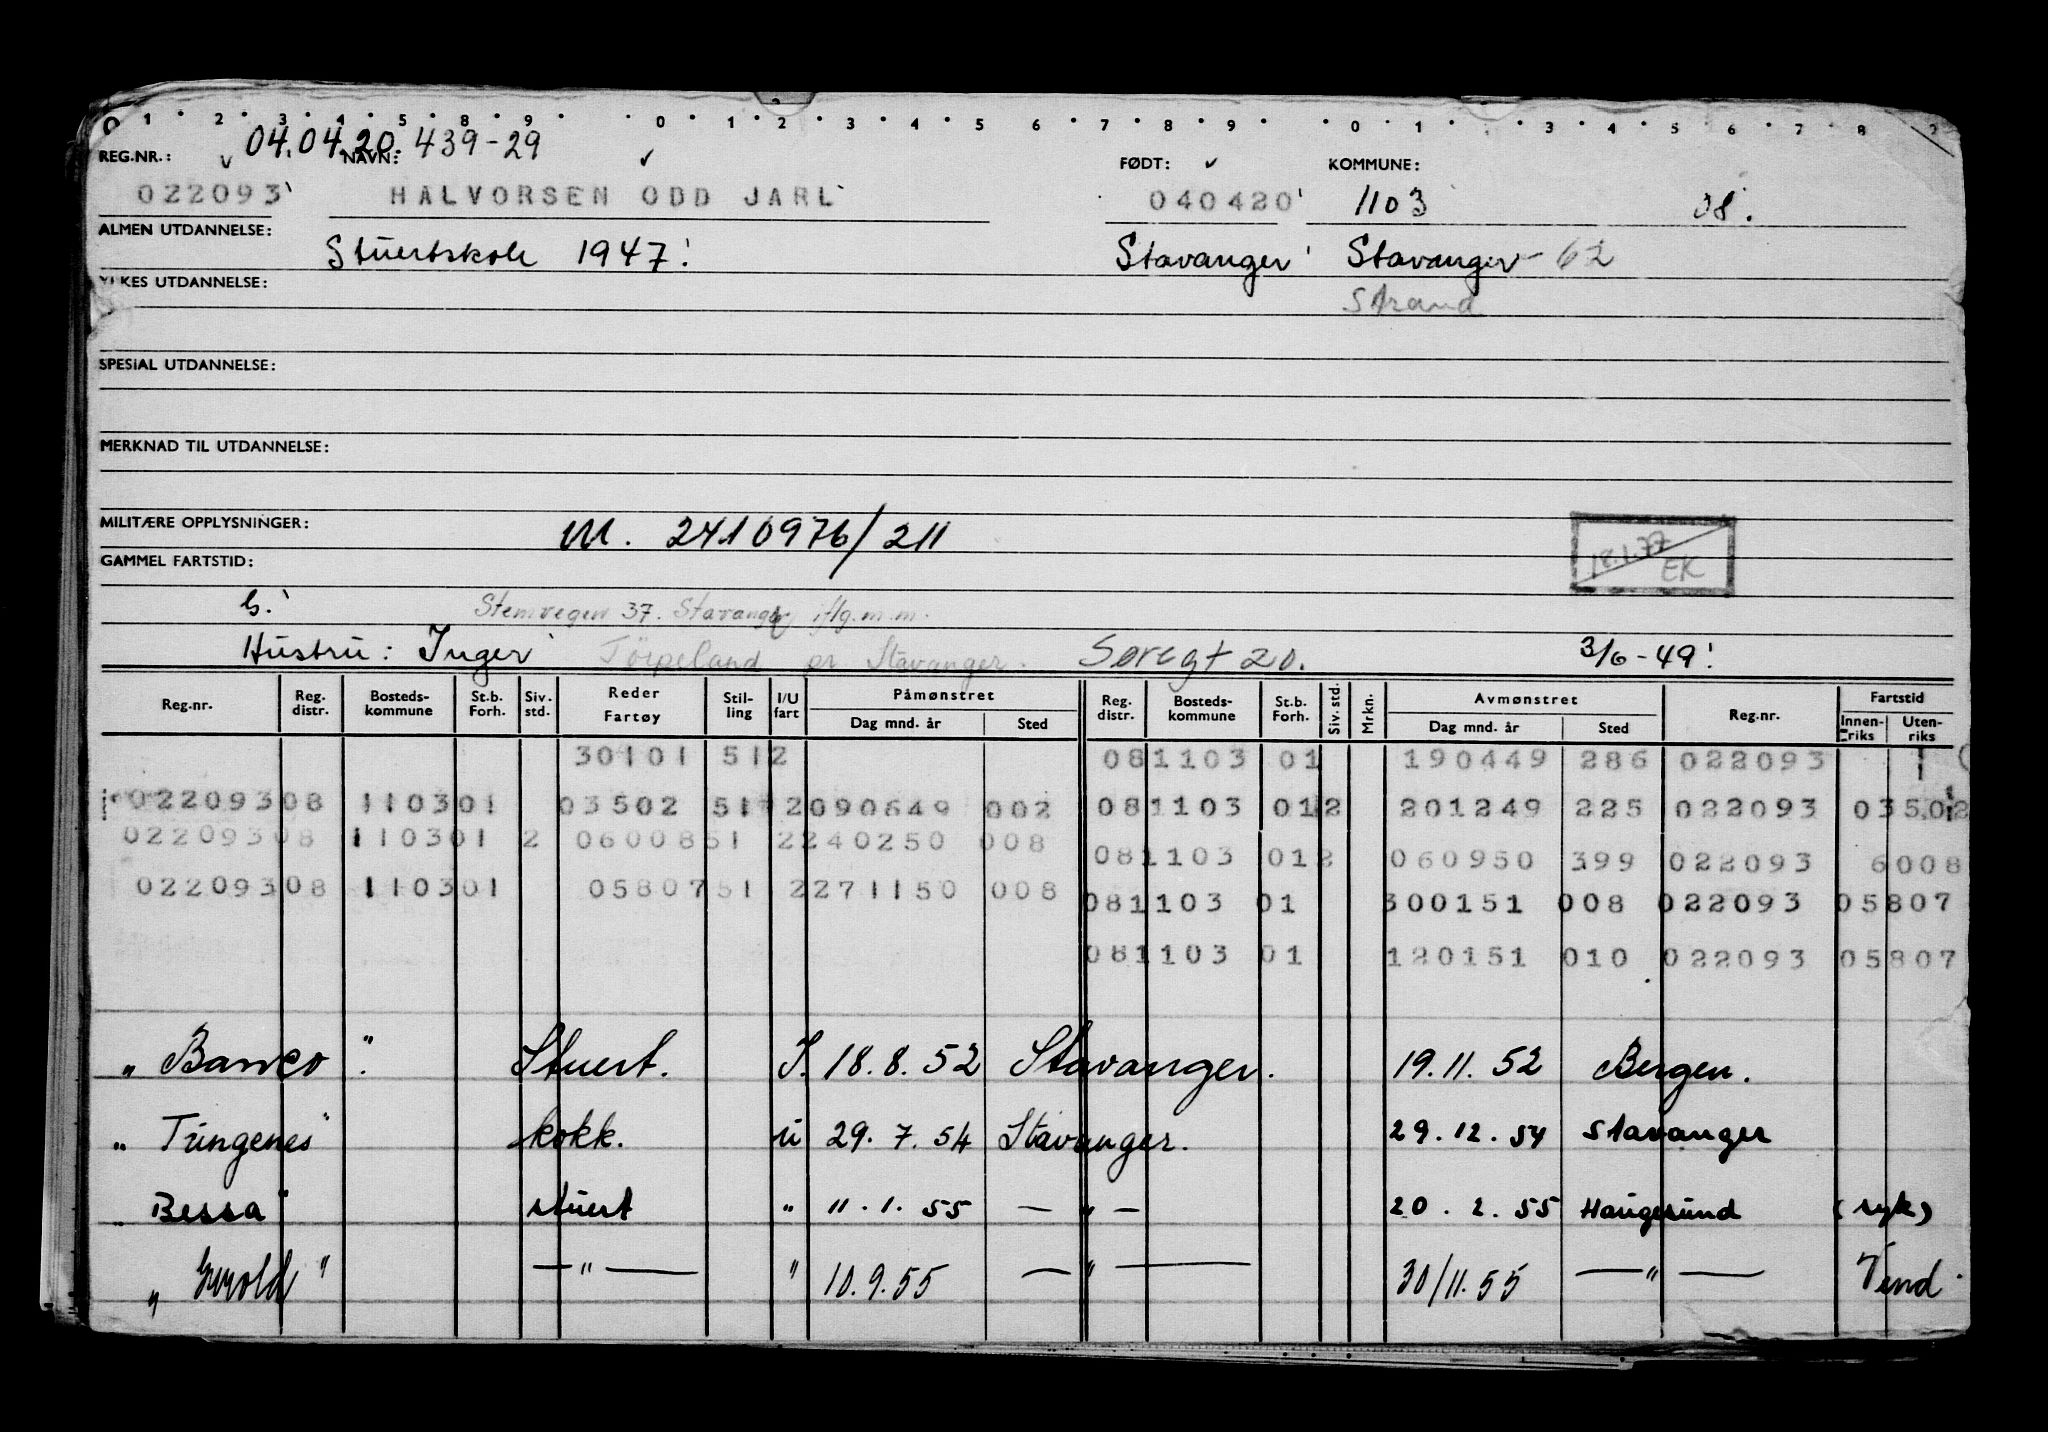 0 1 2 3 4 5 8 9 0 1 2 3 4 5 6 7 8 9 0 1 3 4 5 6 7 8 2
04.04.20. 439-29
REG.NR.: NAVN: FØDT: KOMMUNE:
022093 HALVORSEN ODD JARL 040420 1103 08.
ALMEN UTDANNELSE: Stuertskole 1947. Stavanger Stavanger - 62
YRKES UTDANNELSE: Strand
SPESIAL UTDANNELSE:
MERKNAD TIL UTDANNELSE:
MILITÆRE OPPLYSNINGER: M. 2410976/211
18.1.77 EK
GAMMEL FARTSTID:
G. Stemvegen 37. Stavanger iflg. m.m.
Hustru: Inger Törpeland pr Stavanger. Søregt 20. 3/6-49
Reg.nr. Reg. distr. Bosteds-kommune St.b. Forh. Siv. std. Reder Fartøy Stil-ling I/U fart Påmønstret Dag mnd. år Sted Reg. distr. Bosteds-kommune St.b. Forh. Siv. std. Mrkn. Avmønstret Dag mnd. år Sted Reg.nr. Fartstid Innen-riks Uten-riks
30101 512 081103 01 190449 286 022093
02209308 110301 03502 51 2090649 002 081103 012 201249 225 022093 03502
02209308 110301 2 0600851 2240250 008 081103 012 060950 399 022093 6008
02209308 110301 0580751 2271150 008 081103 01 300151 008 022093 05807
081103 01 120151 010 022093 05807
„ Banco " Stuert. I. 18.8.52 Stavanger. 19.11.52 Bergen.
„ Tungenes" kokk. u 29.7.54 Stavanger. 29.12.54 Stavanger
„ Bessa" stuert " 11.1.55 — " — 20.2.55 Haugesund (syk)
„ " — " — " 10.9.55 — " — 30/11.55 — " — Vend.